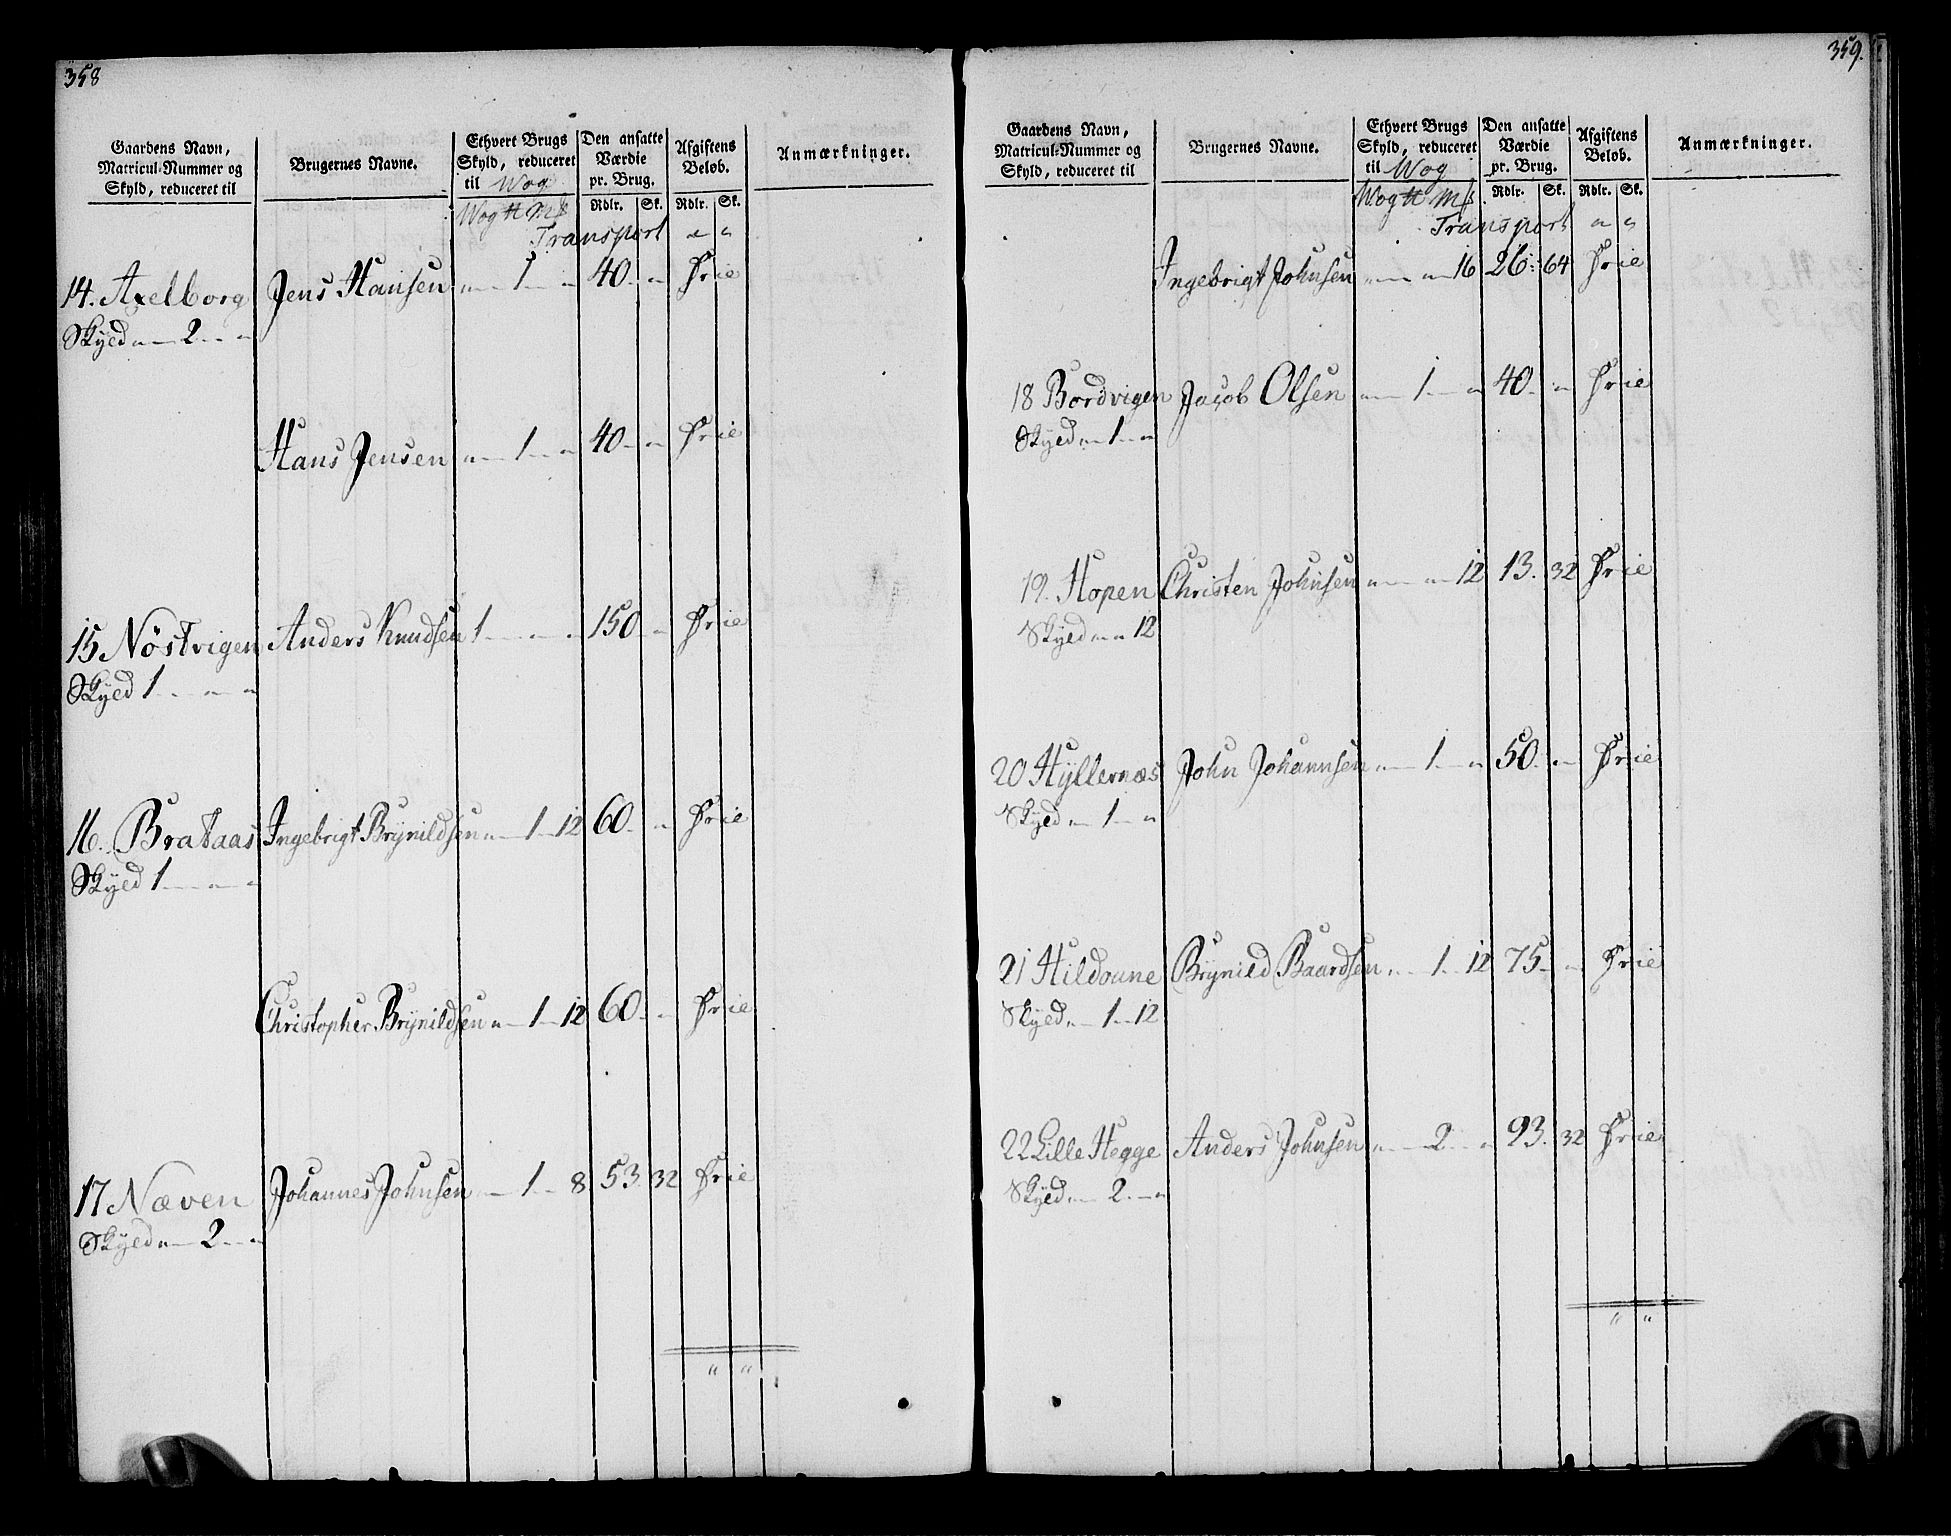 358
Gaardens Navn, Matricul-Nummer og Skyld, reduceret til
Brugernes Navne.
Ethvert Brugs Skyld, reduceret til Wog
Den ansatte Værdie pr. Brug.
Afgiftens Beløb.
Anmærkninger.
Wog ℔ Mß Rdlr. Sk. Rdlr. Sk.
Transport " "
14. Axelborg Jens Hansen " 1 " 40 " Frie
Skyld " 2 "
Hans Jensen " 1 " 40 " Frie
15 Nöstvigen Anders Knudsen 1 " " 150 " Frie
Skyld 1 " "
16. Brataas Ingebrigt Brynildsen " 1 12 60 " Frie
Skyld 1 " "
Christopher Brynildsen " 1 12 60 " Frie
17 Næven Johannes Johnsen " 1 8 53 32 Frie
Skyld " 2 "
" "
359.
Gaardens Navn, Matricul-Nummer og Skyld, reduceret til
Brugernes Navne.
Ethvert Brugs Skyld, reduceret til Wog
Den ansatte Værdie pr. Brug.
Afgiftens Beløb.
Anmærkninger.
Wog ℔ Mß Rdlr. Sk. Rdlr. Sk.
Transport " "
Ingebrigt Johnsen " " 16 26 64 Frie
18 Bordvigen Jacob Olsen " 1 " 40 " Frie
Skyld " 1 "
19. Hopen Christen Johnsen " " 12 13. 32 Frie
Skyld " " 12
20 Hyllernæs John Johannsen " 1 " 50 " Frie
Skyld " 1 "
21 Hildoune Brynild Baardsen " 1 12 75 " Frie
Skyld " 1 12
22 Lille Hegge Anders Johnsen " 2 " 93. 32 Frie
Skyld " 2 "
" "